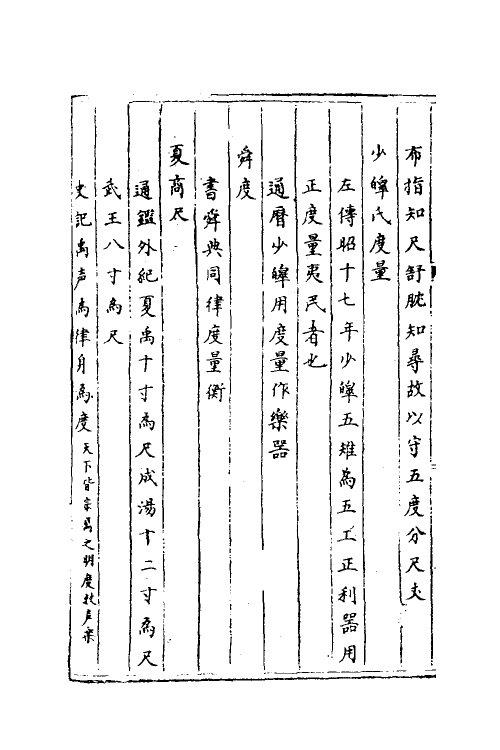 布指知尺舒肱知尋故以守五度分尺丈
少皞氏度量
左傳昭十七年少皞五雉為五工正利器用
正度量夷民者也
通曆少皞用度量作樂器
舜度
書舜典同律度量衡
夏商尺
通鑑外紀夏禹十寸為尺成湯十二寸為尺
武王八寸為尺
史記禹声為律身為度天下皆宗禹之明度数声樂